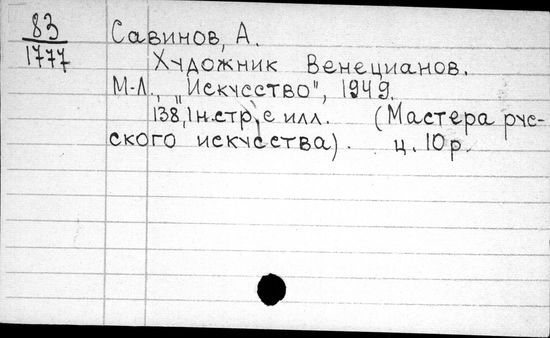 83
1777
Савинов, А.
Художник Венецианов.
М-Л., "Искусство", 1949.
138, 1 н.стр, с илл. (Мастера рус-
ского искусства). ц. 10 р.